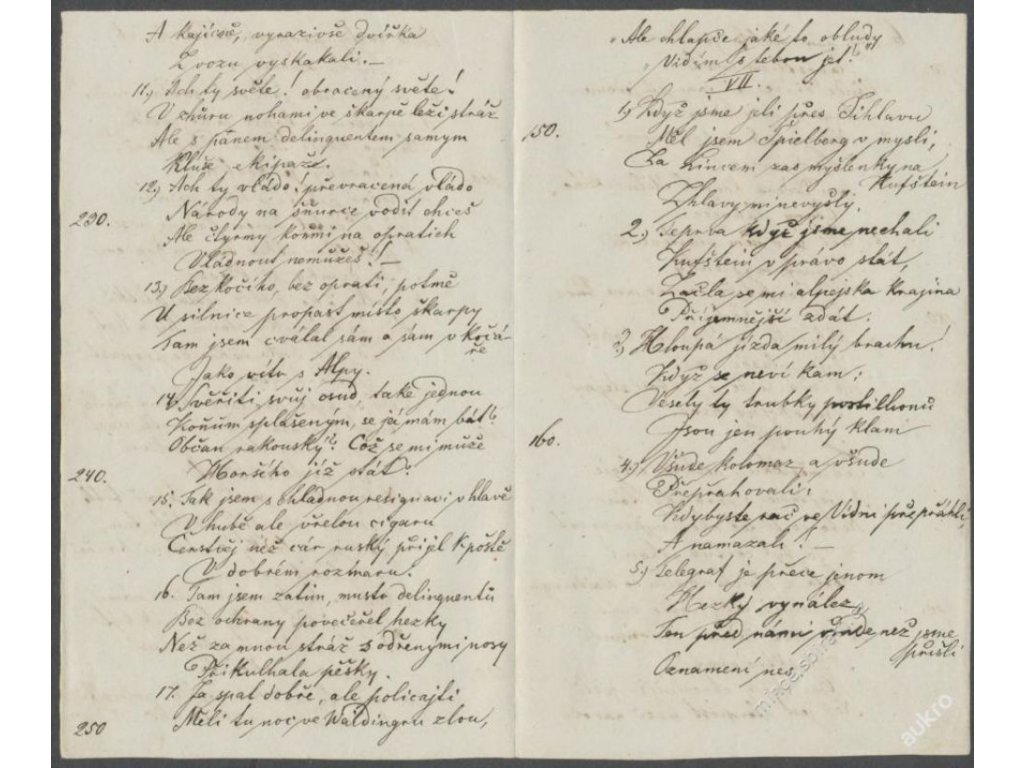 A kajícně, vyrazivše dvířka
Z vozu vyskákali. —
11.) Ach ty světe! obrácený světe!
V zhůru nohami ve škarpě leží stráž
Ale s pánem delinquentem samým
Kluše ekipáž.
12.) Ach ty vládo! převrácená vládo
230.
Národy na šňurce vodit chceš
Ale čtyrmy koňmi na opratích
Vládnout nemůžeš! —
13.) Bez kočího, bez opratí, potmě
U silnice propast místo škarpy
Tam jsem cválal sám a sám v kočá-
ře
Jako vítr s Alpy.
14. Svěřiti svůj osud také jednou
Koňům splašeným, se já mám bát?
Občan rakouský? Což se mi může
Horšího již stát?
240.
15. Tak jsem s chladnou resignací v hlavě
V hubě ale vřelou cigaru
Čerstvěj než cár ruský přijel k poště
V dobrém rozmaru.
16. Tam jsem zatím, musto delinquentů
Bez ochrany povečeřel hezky
Než za mnou stráž s odřenými nosy
Přikulhala pěšky.
17. Já spal dobře, ale policajti
Měli tu noc ve Waidingru zlou,
250
"Ale chlapče jaké to obludy
"Vidím s tebou jet!"
VII.
1.) Když jsme jeli přes Jihlavu
150.
Měl jsem Spielberg v mysli,
Za Lincem zas myšlenky na
Kufštein
Z hlavy mi nevyšly.
2.) Teprva když jsme nechali
Kufštein v právo stát,
Začla se mi alpejská krajina
Příjemnější zdát.
3.) Hloupá jízda milý brachu!
Když se neví kam;
Veselý ty trubky postilhonů
160.
Jsou jen pouhý klam
4.) Všude kolomaz a všude
Přepřahovali;
Kdybyste rač ve Vídni přepřáhli
A namazali! —
5.) Telegraf je přece jenom
Hezký vynález,
Ten před námi všude než jsme
přišli
Oznámení nes
aukro